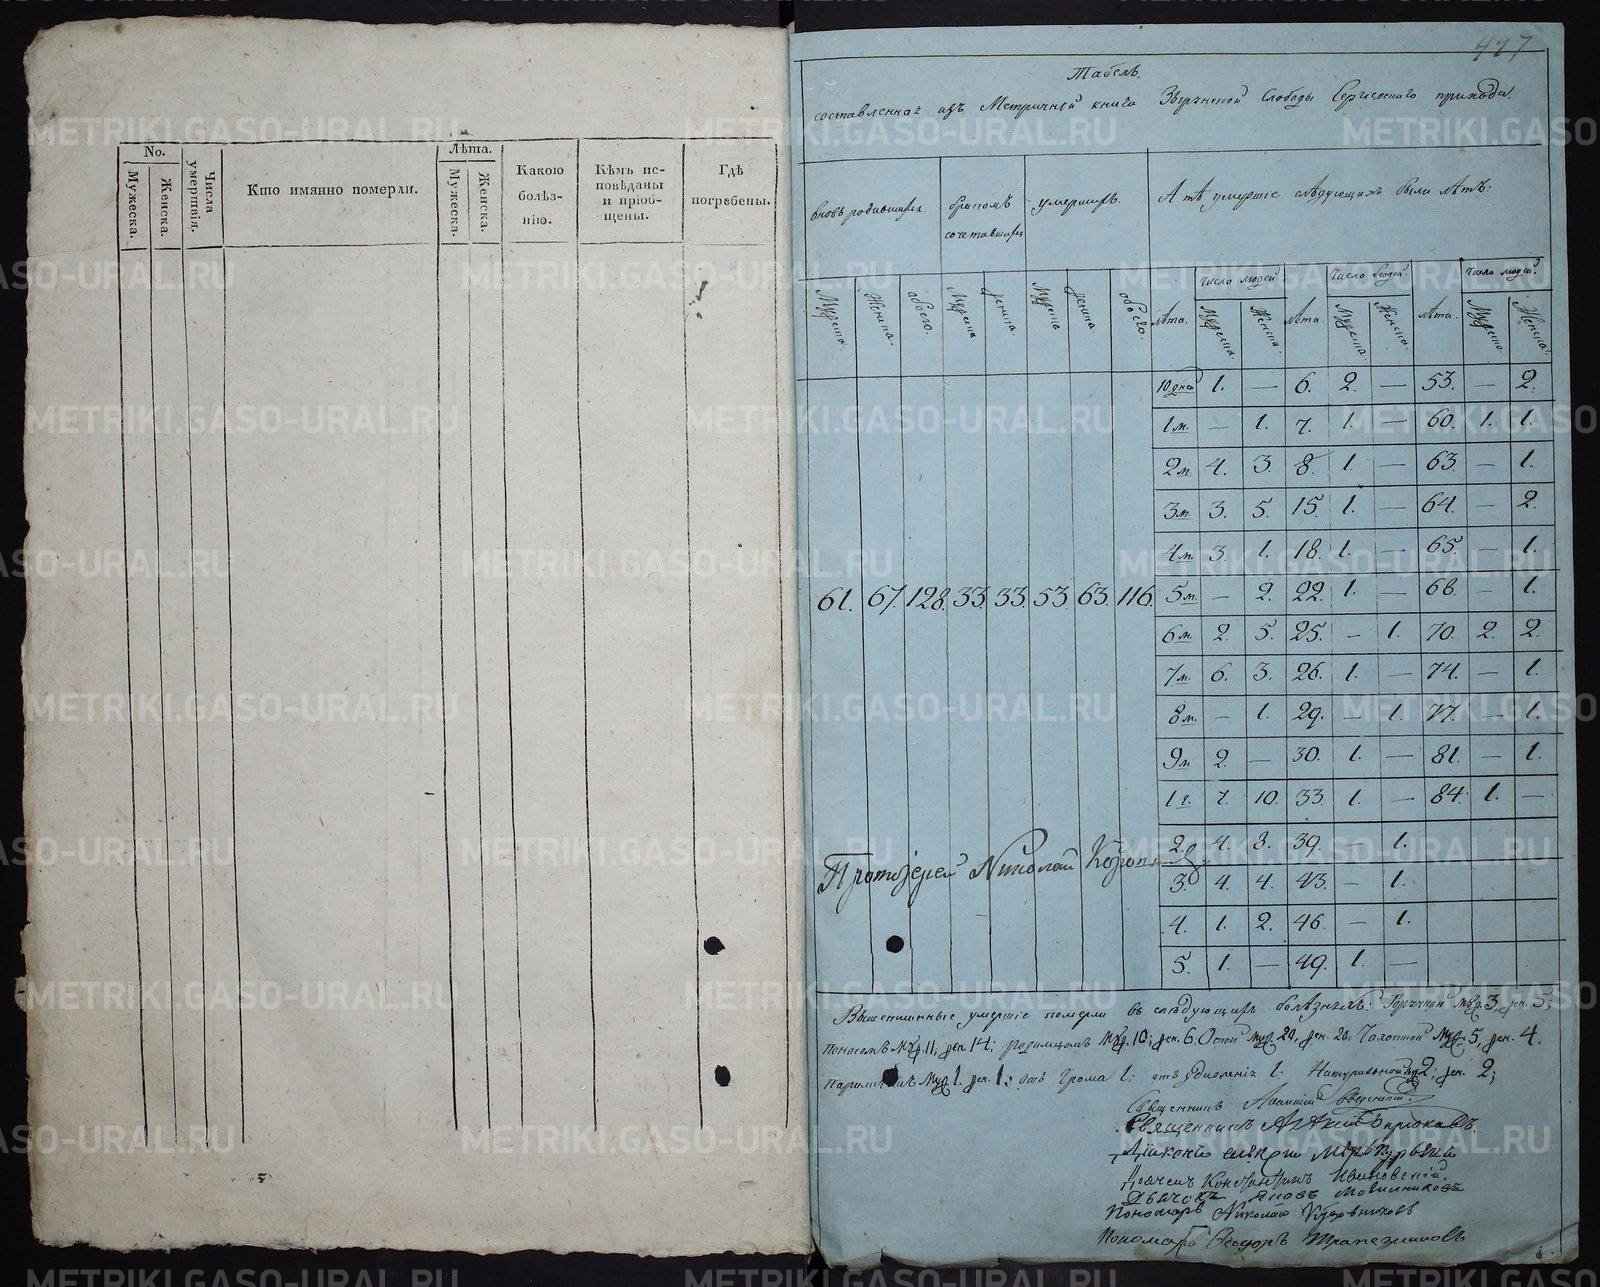 No.
Лѣта.
Мужеска.
Женска.
Числа умертвія.
Кто имянно померли.
Мужеска.
Женска.
Какою болѣз-
нію.
Кѣмъ ис-
повѣданы
и пріоб-
щены.
Гдѣ
погребены.
Табель
составленная изъ Метричной книги Слободы Сергіевскаго прихода.
вновь родившихся.
бракомъ сочетавшихся
умершихъ.
А тѣ умершіе слѣдующихъ были лѣтъ:
Мужеска.
Женска.
обоего.
Мужеска
женска.
Мужеска
женска.
обоего.
лѣта.
число людей
Мужеска.
Женска.
лѣта.
число людей.
Мужеска.
Женска.
лѣта.
число людей.
Мужеска.
Женска.
10 дней 1. — 6. 2. — 53. — 2.
1 м. — 1. 7. 1. — 60. 1. 1.
2 м. 4. 3. 8. 1. — 63. — 1.
3 м. 3. 5. 15. 1. — 64. — 2.
4 м. 3. 1. 18. 1. — 65. — 1.
61. 67. 128. 33. 33. 53. 63. 116.
5 м. — 2. 22. 1. — 68. — 1.
6 м. 2. 5. 25. — 1. 70. 2. 2.
7 м. 6. 3. 26. 1. — 74. — 1.
8 м. — 1. 29. — 1. 77. — 1.
9 м. 2. — 30. 1. — 81. — 1.
1 г. 7. 10. 33. 1. — 84. 1. —
2. 4. 3. 39. — 1.
Протоіерей Николай
3. 4. 4. 43. — 1.
4. 1. 2. 46. — 1.
5. 1. — 49. 1. —
Вышеписанные умершіе померли въ слѣдующихъ болѣзняхъ: Горячкой муж. 3, жен. 5;
Поносомъ муж. 11, жен. 14; родимцомъ муж. 10; жен. 6; Оспой муж. 20, жен. 20. Чахоткой муж. 5, жен. 4.
муж. 1. жен. 1.; отъ Грома 1; отъ удавленія 1: Натуральной муж. 2; жен. 2;
Священникъ
Священникъ Бирюковъ.
Діаконъ
Дьячекъ Константинъ
Дьячокъ Яковъ
Пономарь Николай
Пономарь Феодоръ Трапезниковъ
METRIKI.GASO-URAL.RU